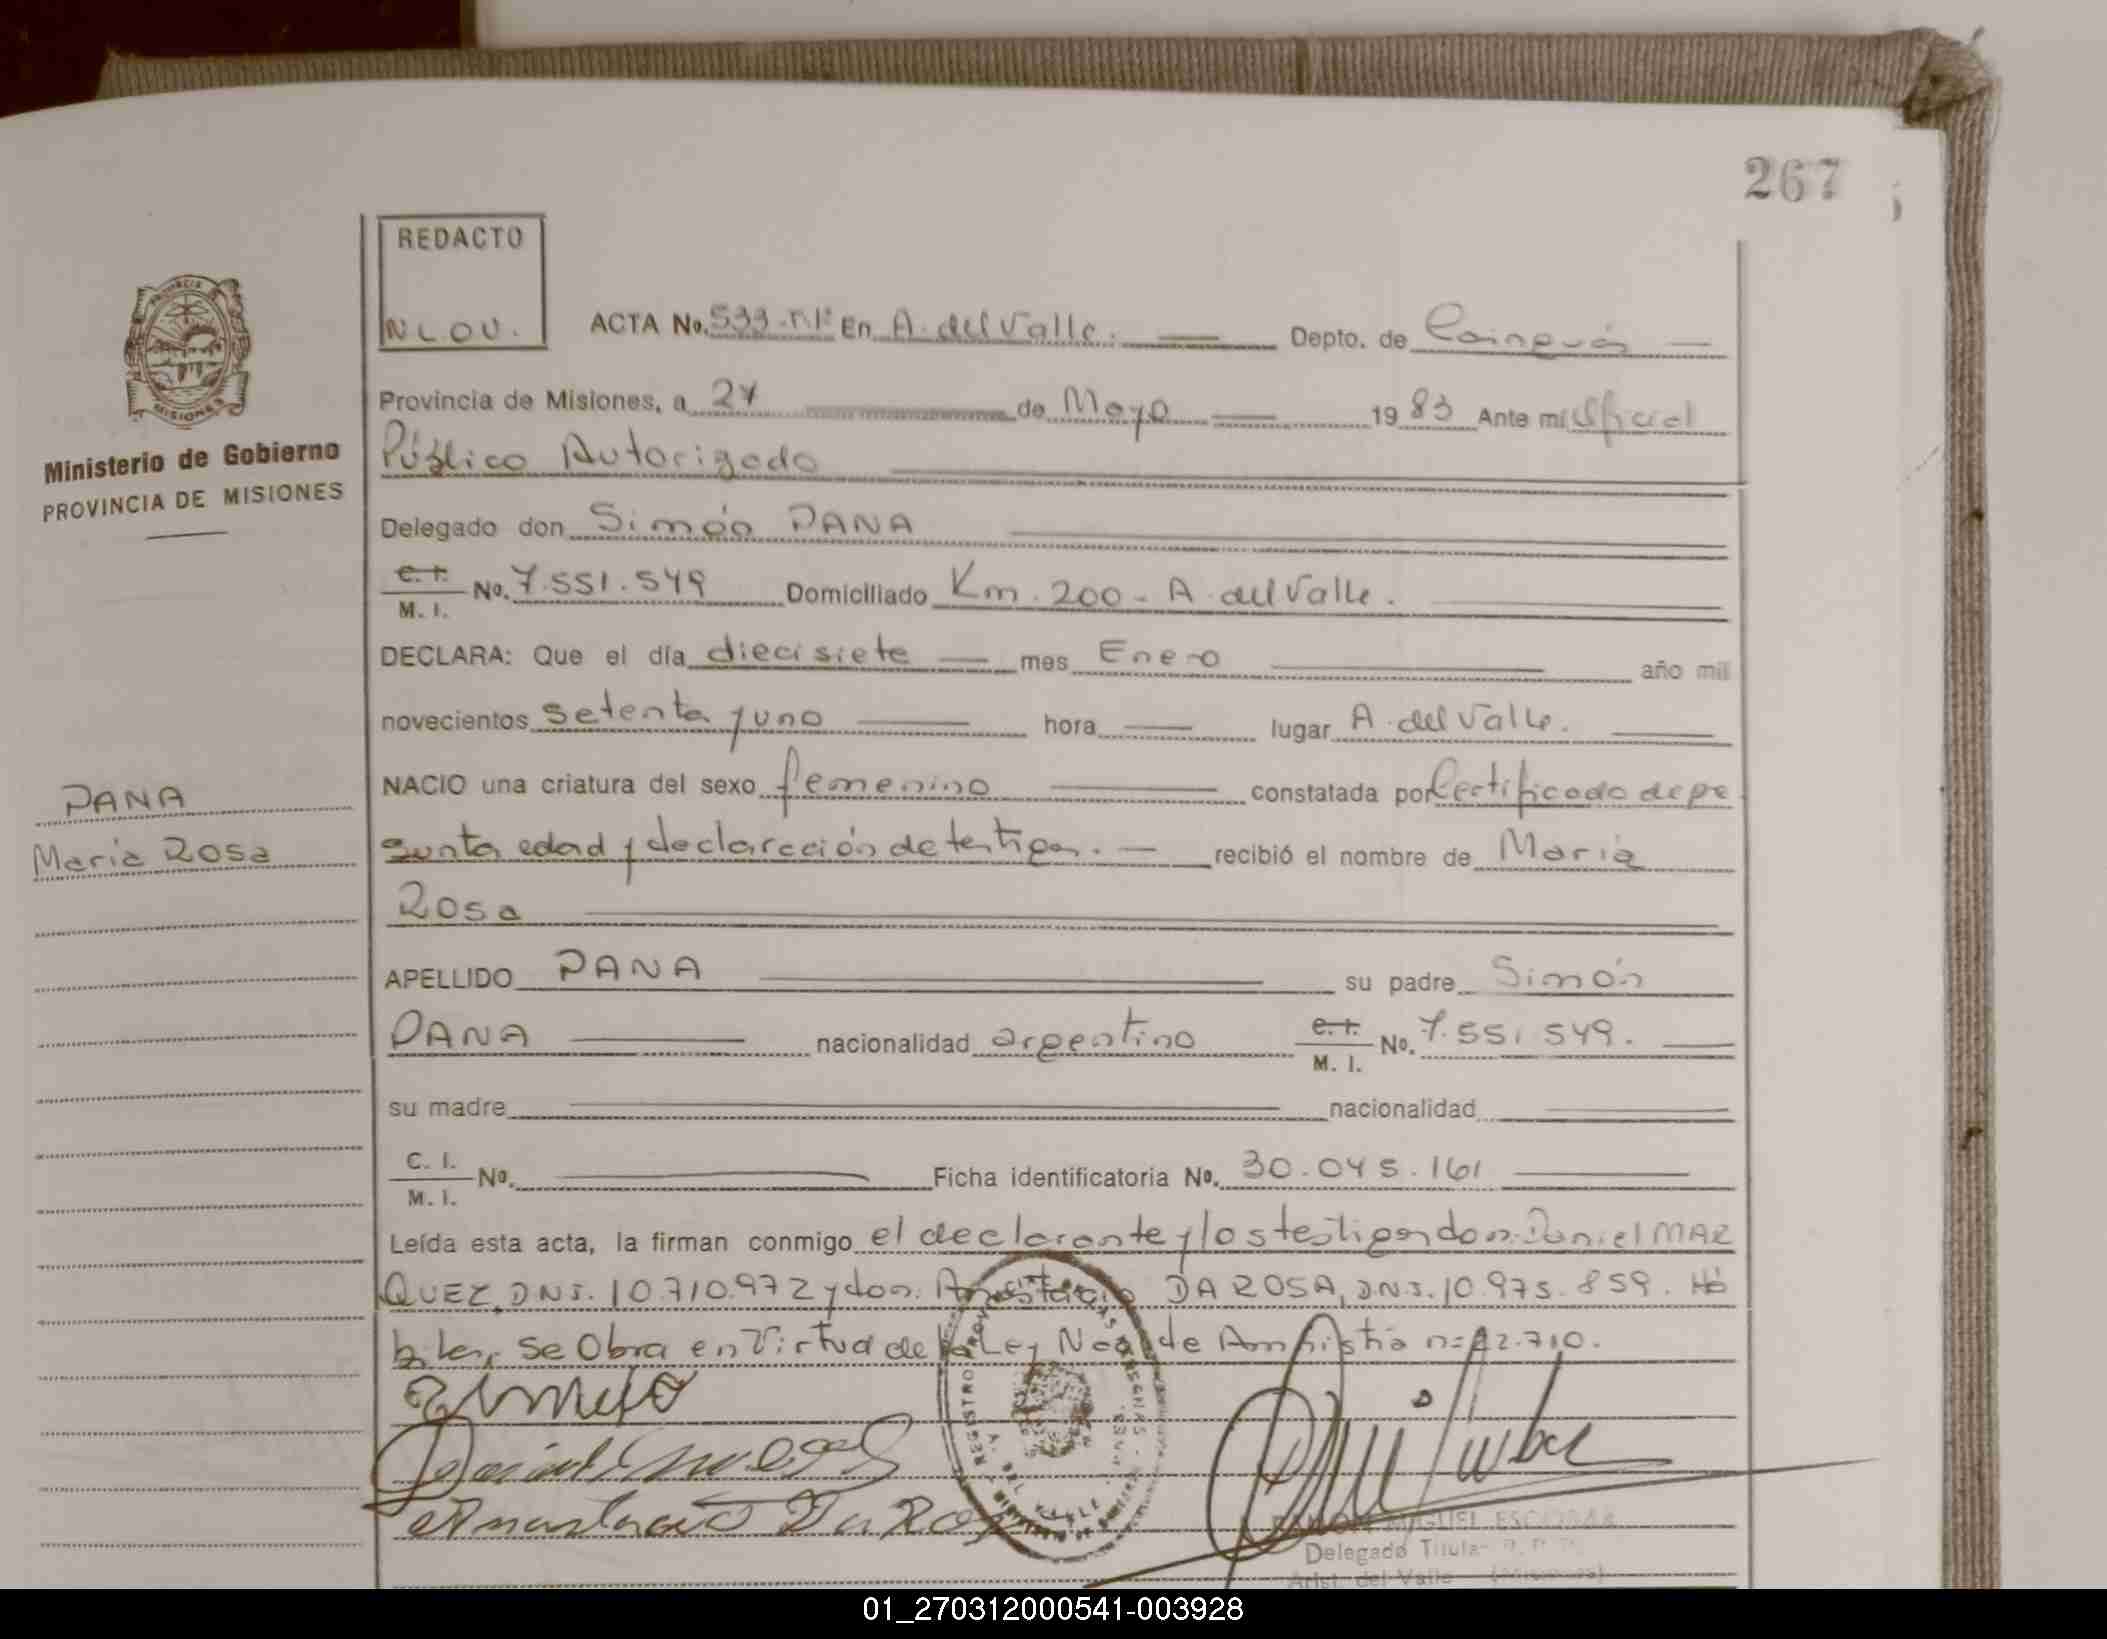 267
REDACTO
N L. O V.
ACTA No. 533 - En A. del Valle. Depto. de Cainguás
PROVINCIA MISIONES
Provincia de Misiones, a 24 de Mayo 1983 Ante mi Oficial
Público Autorizado
Ministerio de Gobierno
PROVINCIA DE MISIONES
Delegado don Simón DANA
C. I. M. I. No. 7.551.549 Domiciliado Km. 200 - A. del Valle.
DECLARA: Que el día diecisiete mes Enero año mil
novecientos setenta y uno hora lugar A. del Valle.
NACIO una criatura del sexo femenino constatada por Certificado de pre
sunta edad y declaración de testigos. recibió el nombre de Maria
Rosa
DANA
Maria Rosa
APELLIDO DANA su padre Simón
DANA nacionalidad argentino C. I. M. I. No. 7.551.549.
su madre nacionalidad
C. I. M. I. No. Ficha identificatoria No. 30.045.161
Leída esta acta, la firman conmigo el declarante y los testigos don: Daniel MAR
QUEZ, DNI. 10.710.972 y don. Anastacio DA ROSA, DNI. 10.975.859. Há
biles, Se Obra en Virtud de la Ley Nac. de Amnistia n= 22.710.
Anastacio Da Rosa
RAMON MIGUEL ESCOBAR
Delegado Titular
Arist. del Valle (Misiones)
01_270312000541-003928